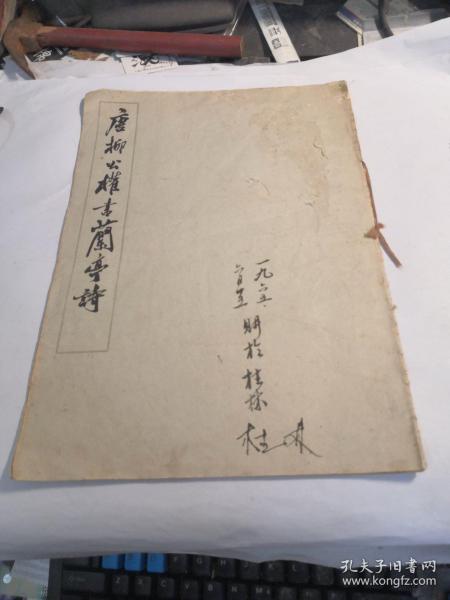 唐柳公權書蘭亭詩
一九六五.
購於桂林
孔夫子旧书网
www.kongfz.com